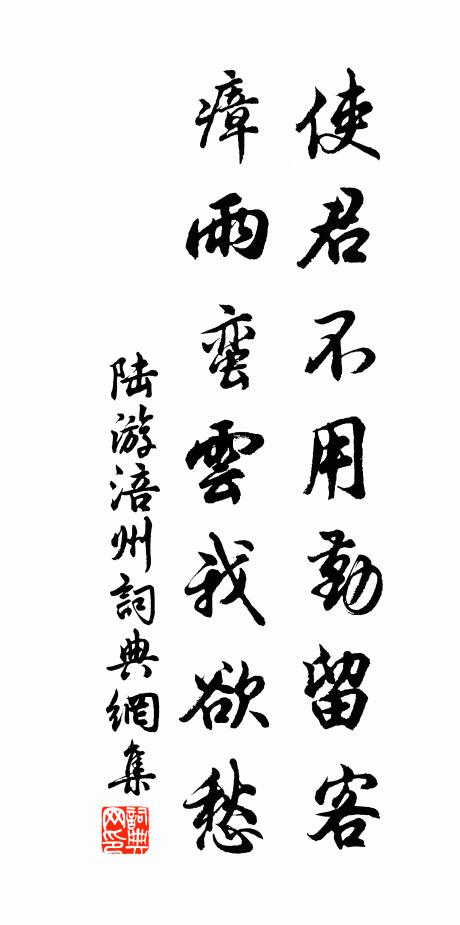 使君不用勤留客
瘴雨蛮雲我欲愁
陆游涪州詞典網集
詞典网印